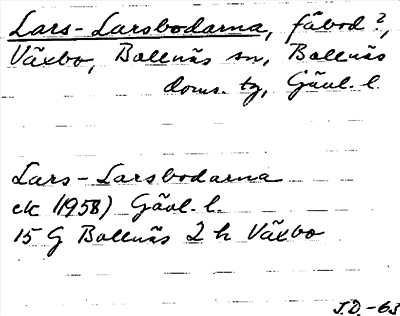 Lars-Larsbodarna, fäbod?,
Växbo, Bollnäs sn, Bollnäs
doms. tg, Gävl. l.
Lars-Larsbodarna
ek (1958) Gävl. l.
15 G Bollnäs 2 h Växbo
J.D.-63